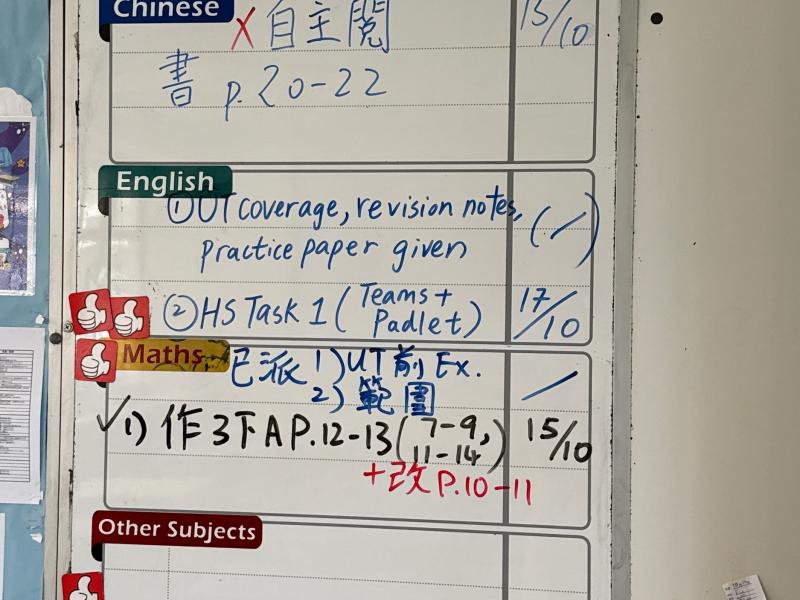 Chinese
✗ 自主閱 15/10
書 p.20-22
English
① UT coverage, revision notes, (/)
practice paper given
② HS Task 1 (Teams + Padlet) 17/10
Maths
已派 1) UT前 Ex. /
2) 範圍
✓ 1) 作3下A P.12-13 (7-9, 11-14) 15/10
+改 P.10-11
Other Subjects